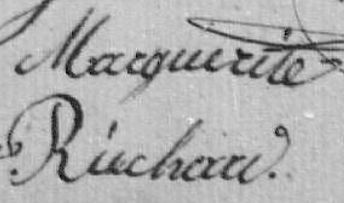 Marguerite
Riuchard.